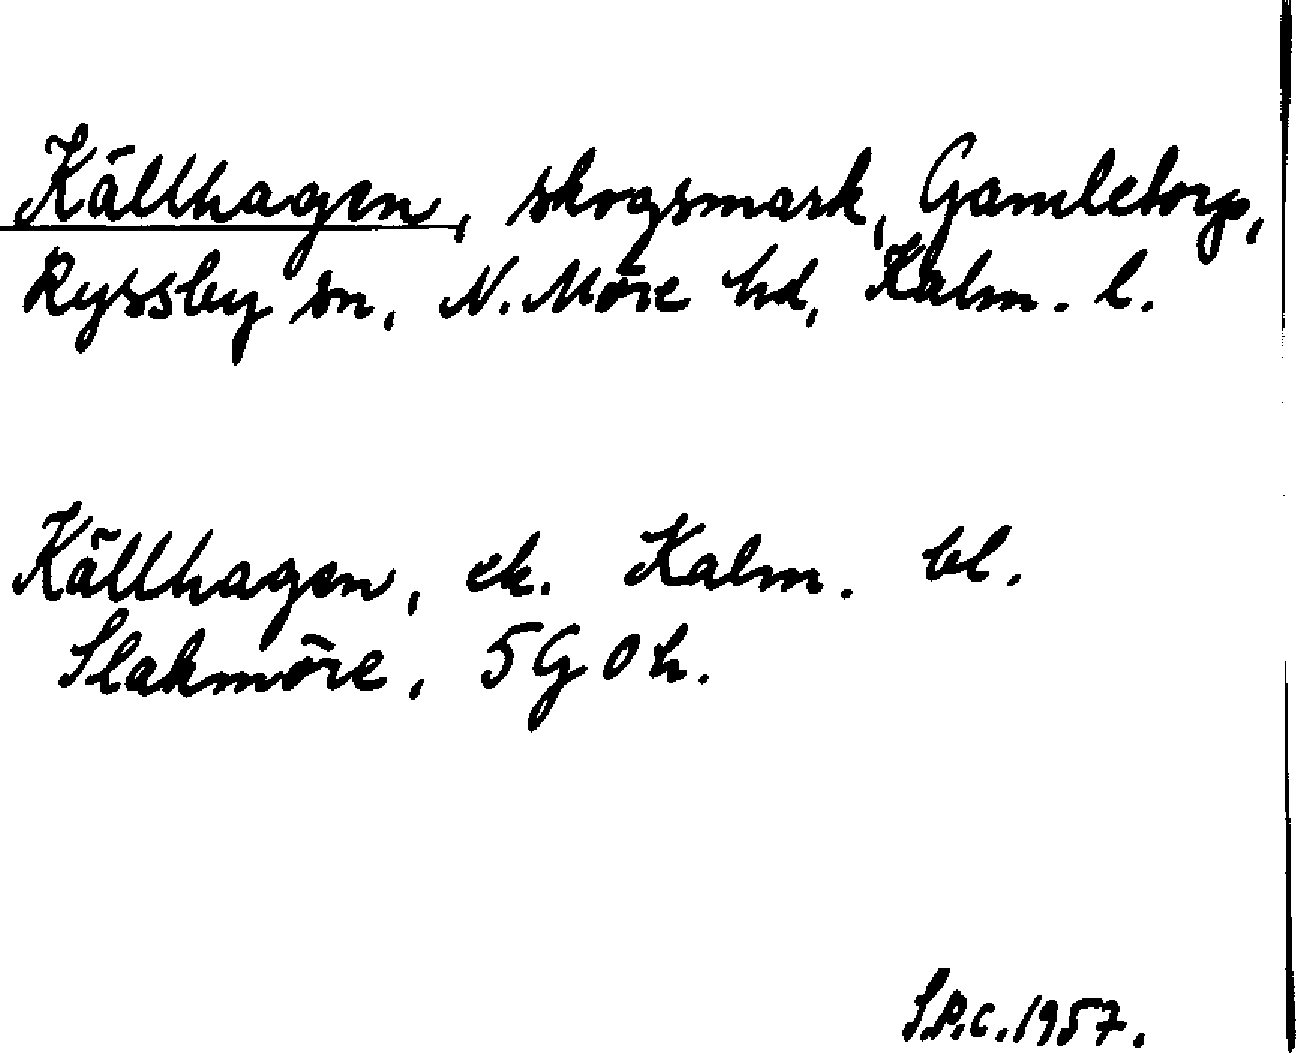 Källhagen, skogsmark, Gamletorp,
Ryssby sn, N. Möre hd, Kalm. l.
Källhagen, ek. Kalm. bl.
Slakmöre, 5G0h.
S.P.C. 1957.